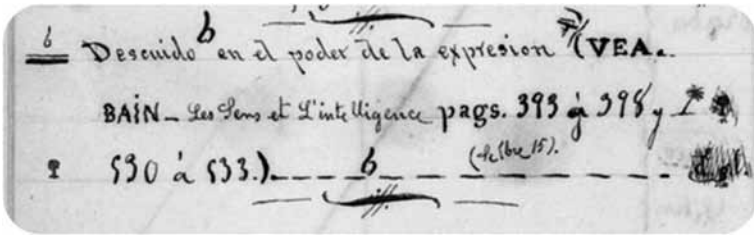 6 Descuido b en el poder de la expresion (VEA.
BAiN - Les Sens et L'intelligence pags. 393 á 398 y
530 á 533.) b